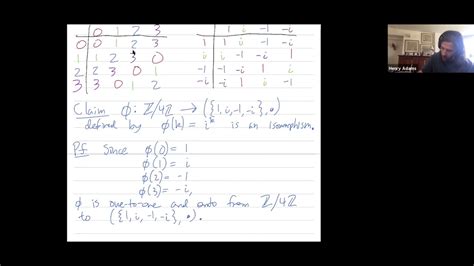 0 1 2 3 1 i -1 -i
0 0 1 2 3 1 1 i -1 -i
1 1 2 3 0 i i -1 -i 1
2 2 3 0 1 -1 -1 -i 1 i
3 3 0 1 2 -i -i 1 i -1
Claim ϕ: ℤ/4ℤ → ({1, i, -1, -i}, •)
defined by ϕ(k) = i^k is an isomorphism.
Pf Since ϕ(0) = 1
ϕ(1) = i
ϕ(2) = -1
ϕ(3) = -i,
ϕ is one-to-one and onto from ℤ/4ℤ
to ({1, i, -1, -i}, •).
Henry Adams